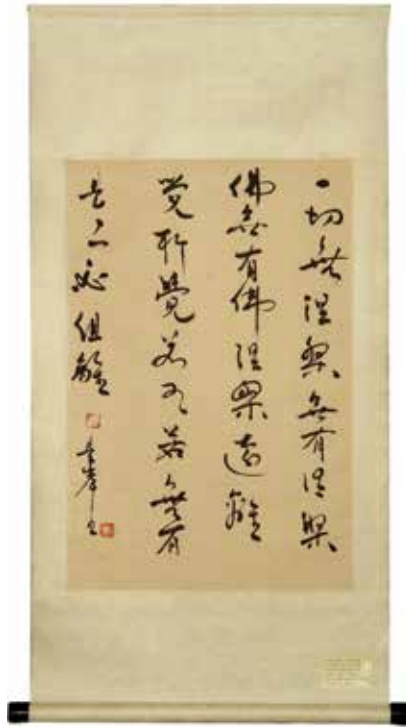 一切無涅槃無有涅槃
佛無有佛涅槃遠離
覺所覺若有若無有
是二悉俱離